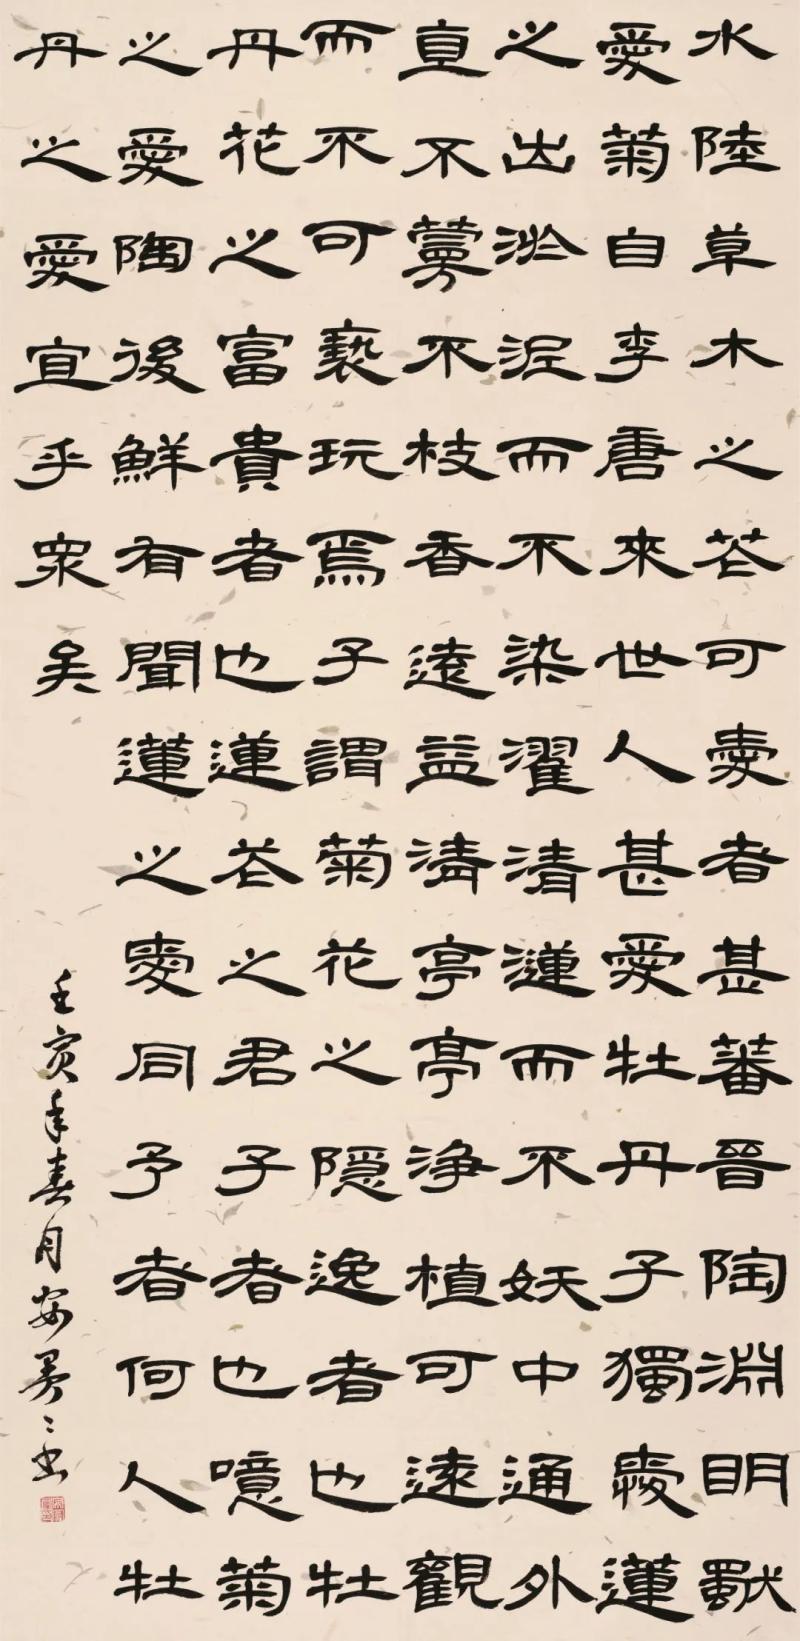 水陸草木之花可愛者甚蕃晉陶淵明獨
愛菊自李唐來世人甚愛牡丹子獨愛蓮
之出淤泥而不染濯清漣而不妖中通外
直不蔓不枝香遠益清亭亭浄植可遠觀
而不可褻玩焉子謂菊花之隐逸者也牡
丹花之富貴者也蓮花之君子者也噫菊
之愛陶後鮮有聞蓮之愛同予者何人牡
丹之愛宜乎衆矣
壬寅年春月安書